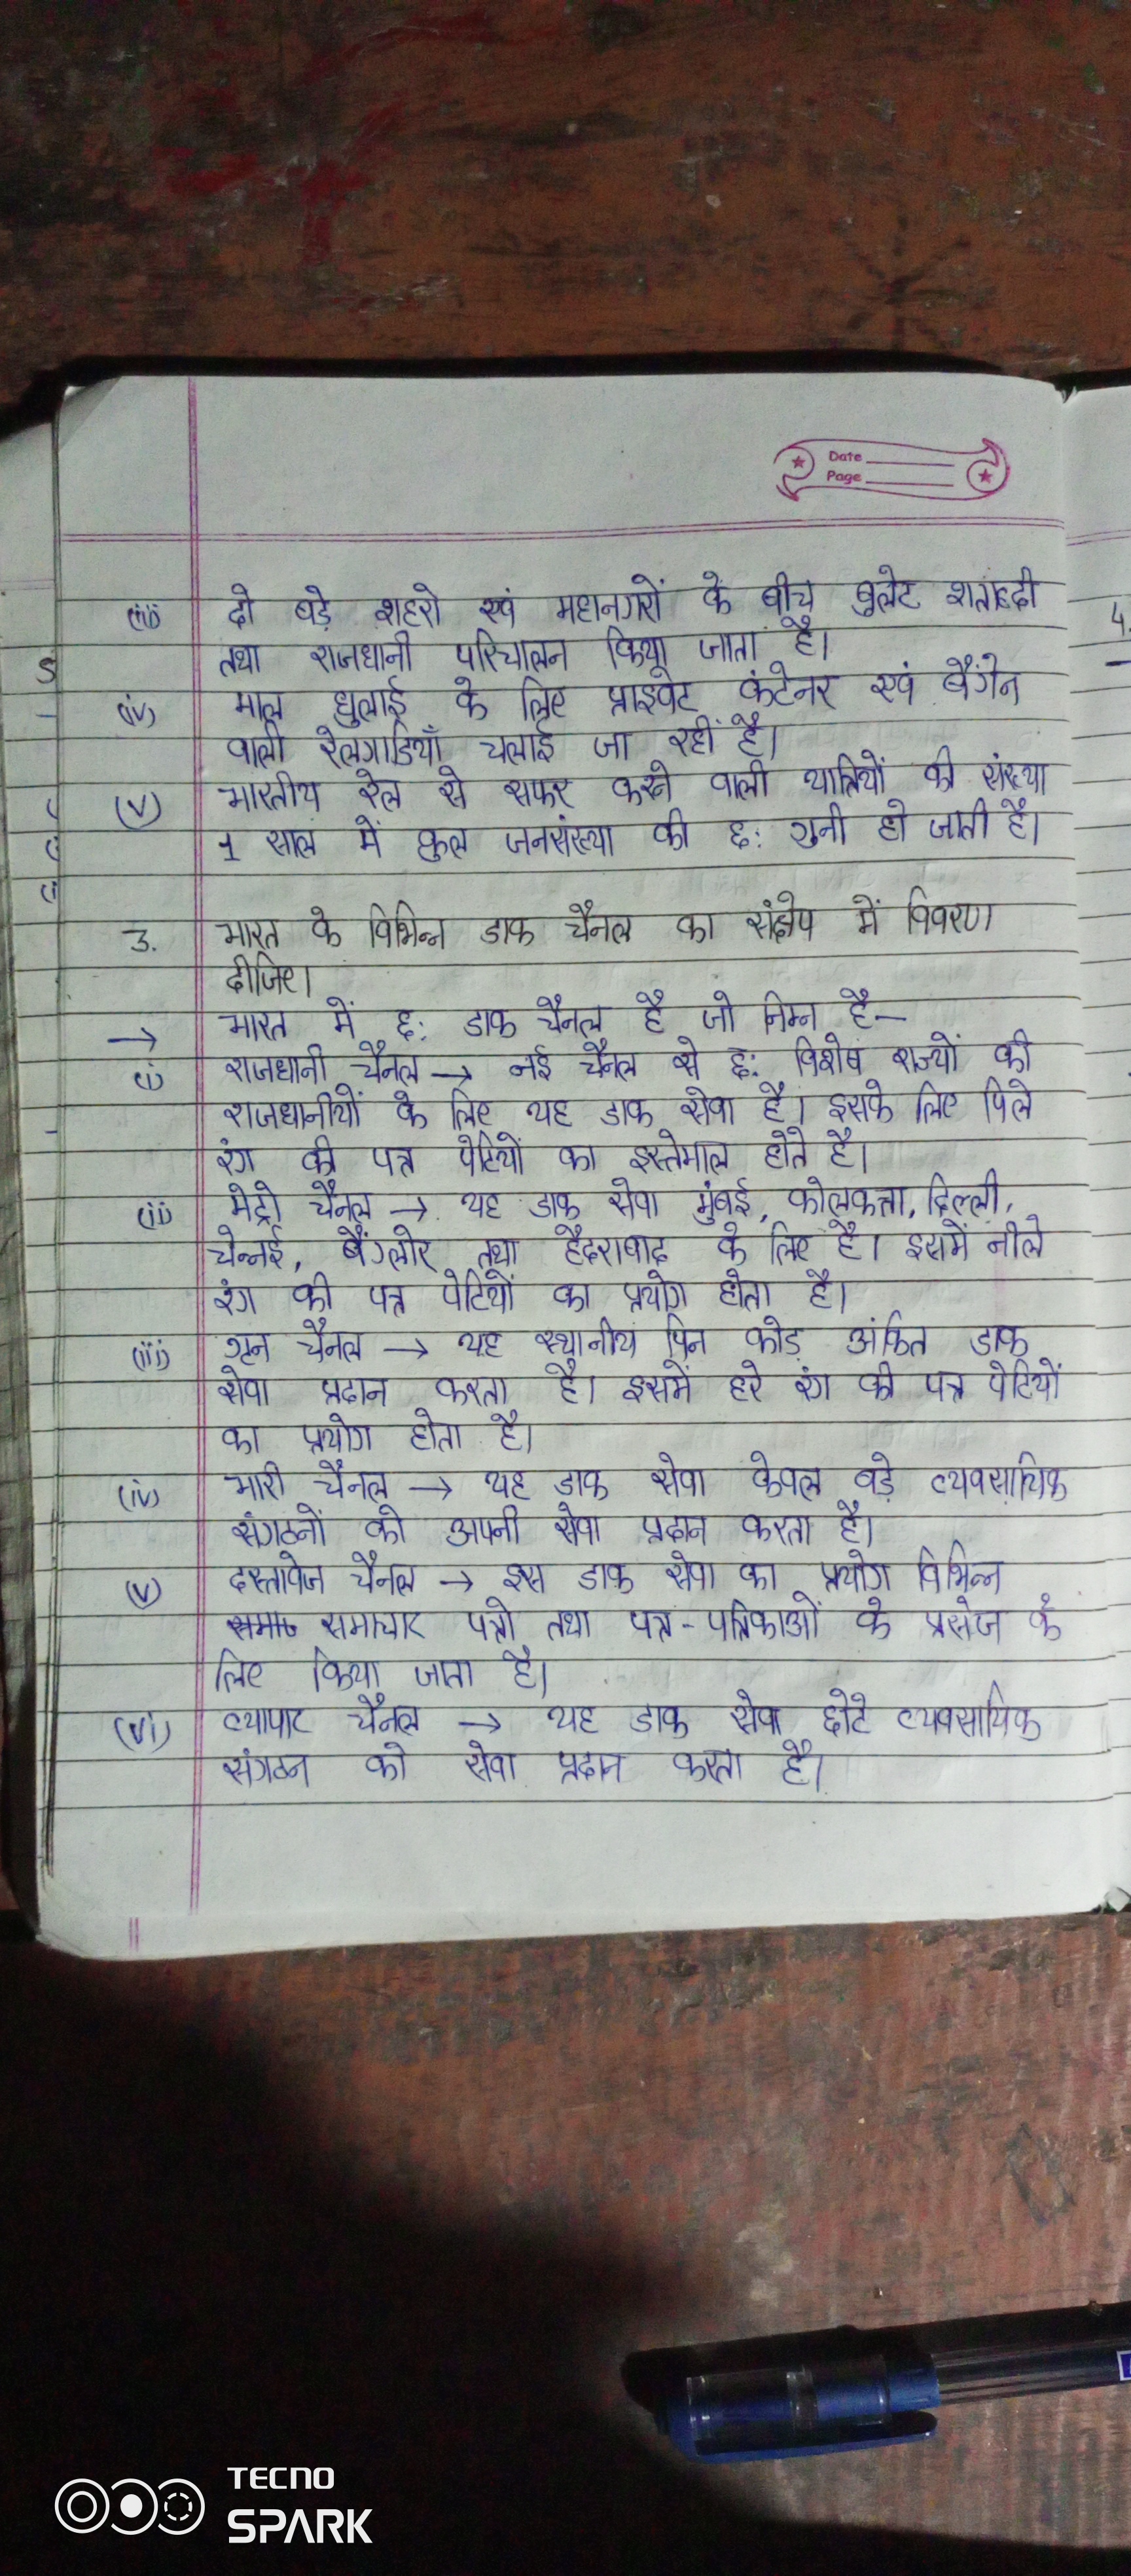 Date
Page
(iii) दो बड़े शहरो एवं महानगरों के बीच बुलेट शताब्दी
तथा राजधानी परिचालन किया जाता है।
(iv) माल धुलाई के लिए प्राइवेट कंटेनर एवं बैंगेन
वाली रेलगाडियाँ चलाई जा रहीं है।
(v) भारतीय रेल से सफर करने वाली यात्रियों की संख्या
1 साल में कुल जनसंख्या की छ: गुनी हो जाती है।
3. भारत के विभिन्न डाक चैनल का संक्षेप में विवरण
दीजिए।
→ भारत में छ: डाक चैनल है जो निम्न है—
(i) राजधानी चैनल → नई चैनल से छ: विशेष राज्यों की
राजधानीयों के लिए यह डाक सेवा है। इसके लिए पिले
रंग की पत्र पेटियों का इस्तेमाल होते है।
(ii) मेट्रो चैनल → यह डाक सेवा मुंबई, कोलकत्ता, दिल्ली,
चेन्नई, बैंग्लोर तथा हैदराबाद के लिए है। इसमें नीले
रंग की पत्र पेटियों का प्रयोग होता है।
(iii) चैनल → यह स्थानीय पिन कोड़ अंकित डाक
सेवा प्रदान करता है। इसमें हरे रंग की पत्र पेटियों
का प्रयोग होता है।
(iv) भारी चैनल → यह डाक सेवा केवल बड़े व्यवसायिक
संगठनों को अपनी सेवा प्रदान करता है।
(v) दस्तावेज चैनल → इस डाक सेवा का प्रयोग विभिन्न
समाचार पत्रो तथा पत्र-पत्रिकाओं के के
लिए किया जाता है।
(vi) व्यापार चैनल → यह डाक सेवा छोटे व्यवसायिक
संगठन को सेवा प्रदान करता है।
4.
TECNO
SPARK